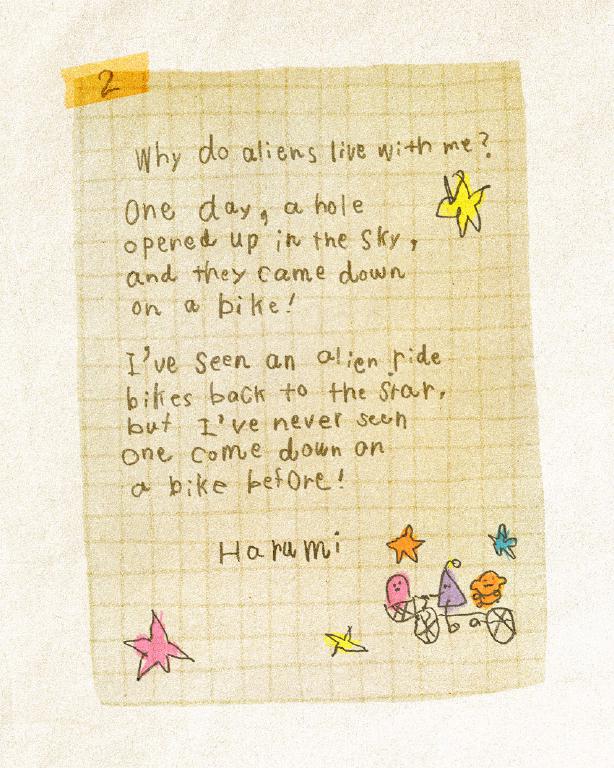 2
Why do aliens live with me?
One day, a hole
opened up in the sky,
and they came down
on a bike!
I've seen an alien ride
bikes back to the star,
but I've never seen
one come down on
a bike before!
Harumi
b a